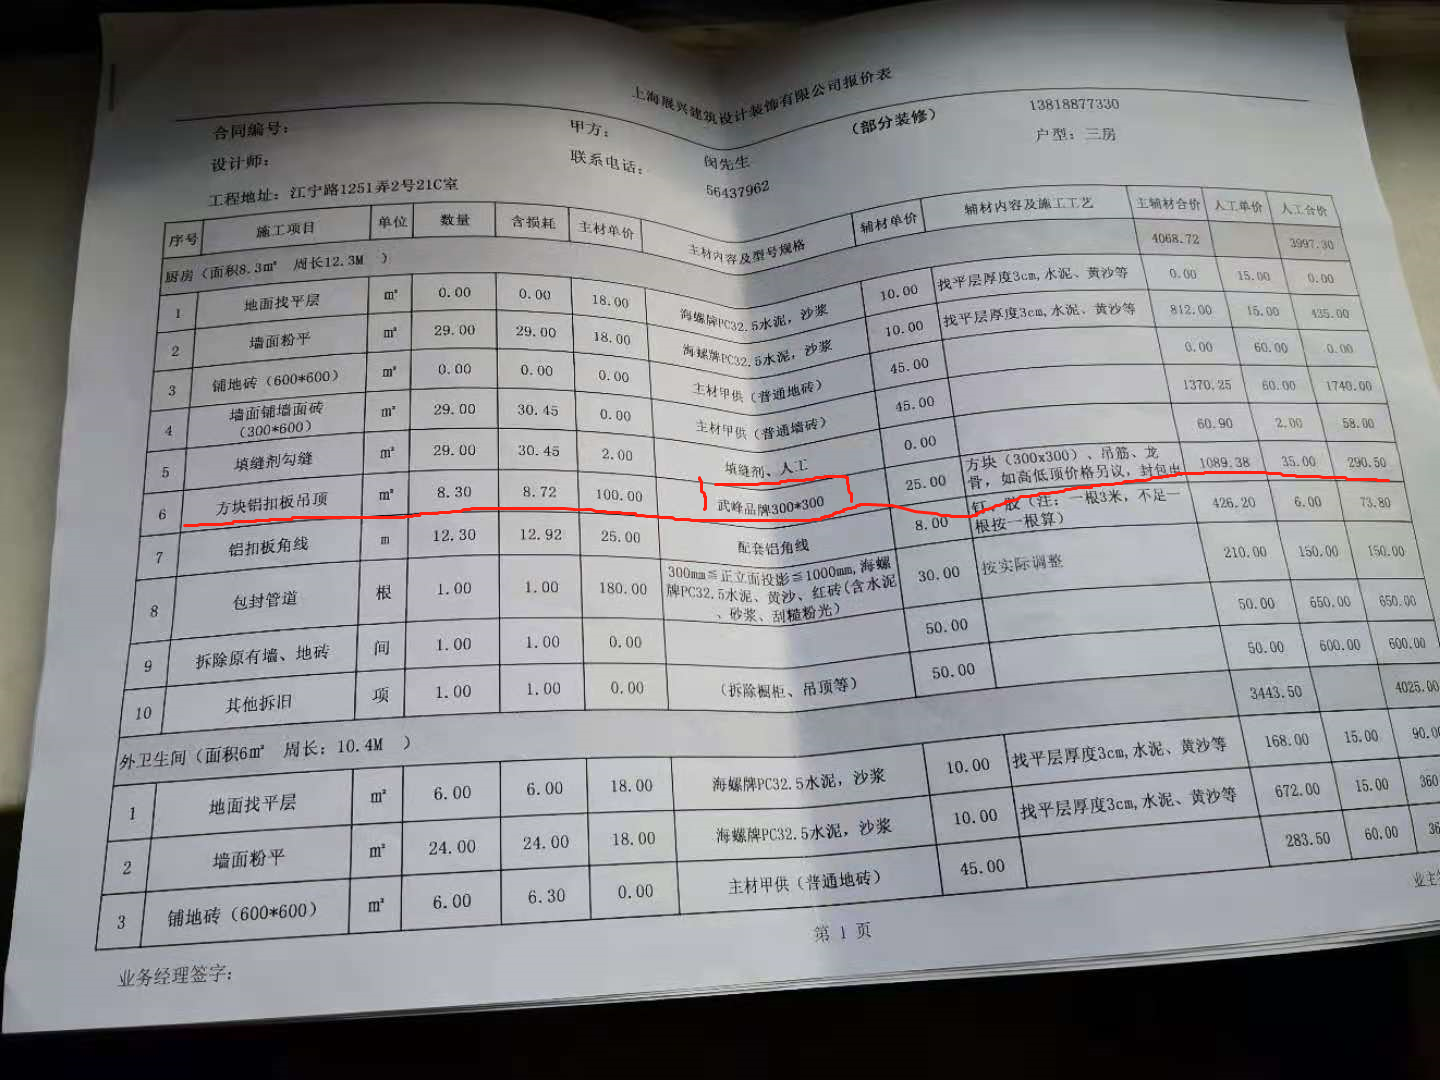 上海展兴建筑设计装饰有限公司报价表
合同编号：
甲方：
（部分装修）
13818877330
设计师：
联系电话：
闵先生
户型：三房
工程地址：江宁路1251弄2号21C室
56437962
序号 施工项目 单位 数量 含损耗 主材单价 主材内容及型号规格 辅材单价 辅材内容及施工工艺 主辅材合价 人工单价 人工合价
厨房（面积8.3㎡ 周长12.3M ） 4068.72 3997.30
1 地面找平层 ㎡ 0.00 0.00 18.00 海螺牌PC32.5水泥，沙浆 10.00 找平层厚度3cm,水泥、黄沙等 0.00 15.00 0.00
2 墙面粉平 ㎡ 29.00 29.00 18.00 海螺牌PC32.5水泥，沙浆 10.00 找平层厚度3cm,水泥、黄沙等 812.00 15.00 435.00
3 铺地砖（600*600） ㎡ 0.00 0.00 0.00 主材甲供（普通地砖） 45.00 0.00 60.00 0.00
4 墙面铺墙面砖（300*600） ㎡ 29.00 30.45 0.00 主材甲供（普通墙砖） 45.00 1370.25 60.00 1740.00
5 填缝剂勾缝 ㎡ 29.00 30.45 2.00 填缝剂、人工 0.00 60.90 2.00 58.00
6 方块铝扣板吊顶 ㎡ 8.30 8.72 100.00 武峰品牌300*300 25.00 方块（300x300）、吊筋、龙骨，如高低顶价格另议，封包出 1089.38 35.00 290.50
7 铝扣板角线 m 12.30 12.92 25.00 配套铝角线 8.00 钉、胶（注：一根3米，不足一根按一根算） 426.20 6.00 73.80
8 包封管道 根 1.00 1.00 180.00 300mm≦正立面投影≦1000mm,海螺牌PC32.5水泥、黄沙、红砖(含水泥、砂浆、刮糙粉光） 30.00 按实际调整 210.00 150.00 150.00
9 拆除原有墙、地砖 间 1.00 1.00 0.00 50.00 50.00 650.00 650.00
10 其他拆旧 项 1.00 1.00 0.00 （拆除橱柜、吊顶等） 50.00 50.00 600.00 600.00
外卫生间（面积6㎡ 周长：10.4M ） 3443.50 4025.00
1 地面找平层 ㎡ 6.00 6.00 18.00 海螺牌PC32.5水泥，沙浆 10.00 找平层厚度3cm,水泥、黄沙等 168.00 15.00 90.0
2 墙面粉平 ㎡ 24.00 24.00 18.00 海螺牌PC32.5水泥，沙浆 10.00 找平层厚度3cm,水泥、黄沙等 672.00 15.00 360
3 铺地砖（600*600） ㎡ 6.00 6.30 0.00 主材甲供（普通地砖） 45.00 283.50 60.00 36
业务经理签字：
第 1 页
业主